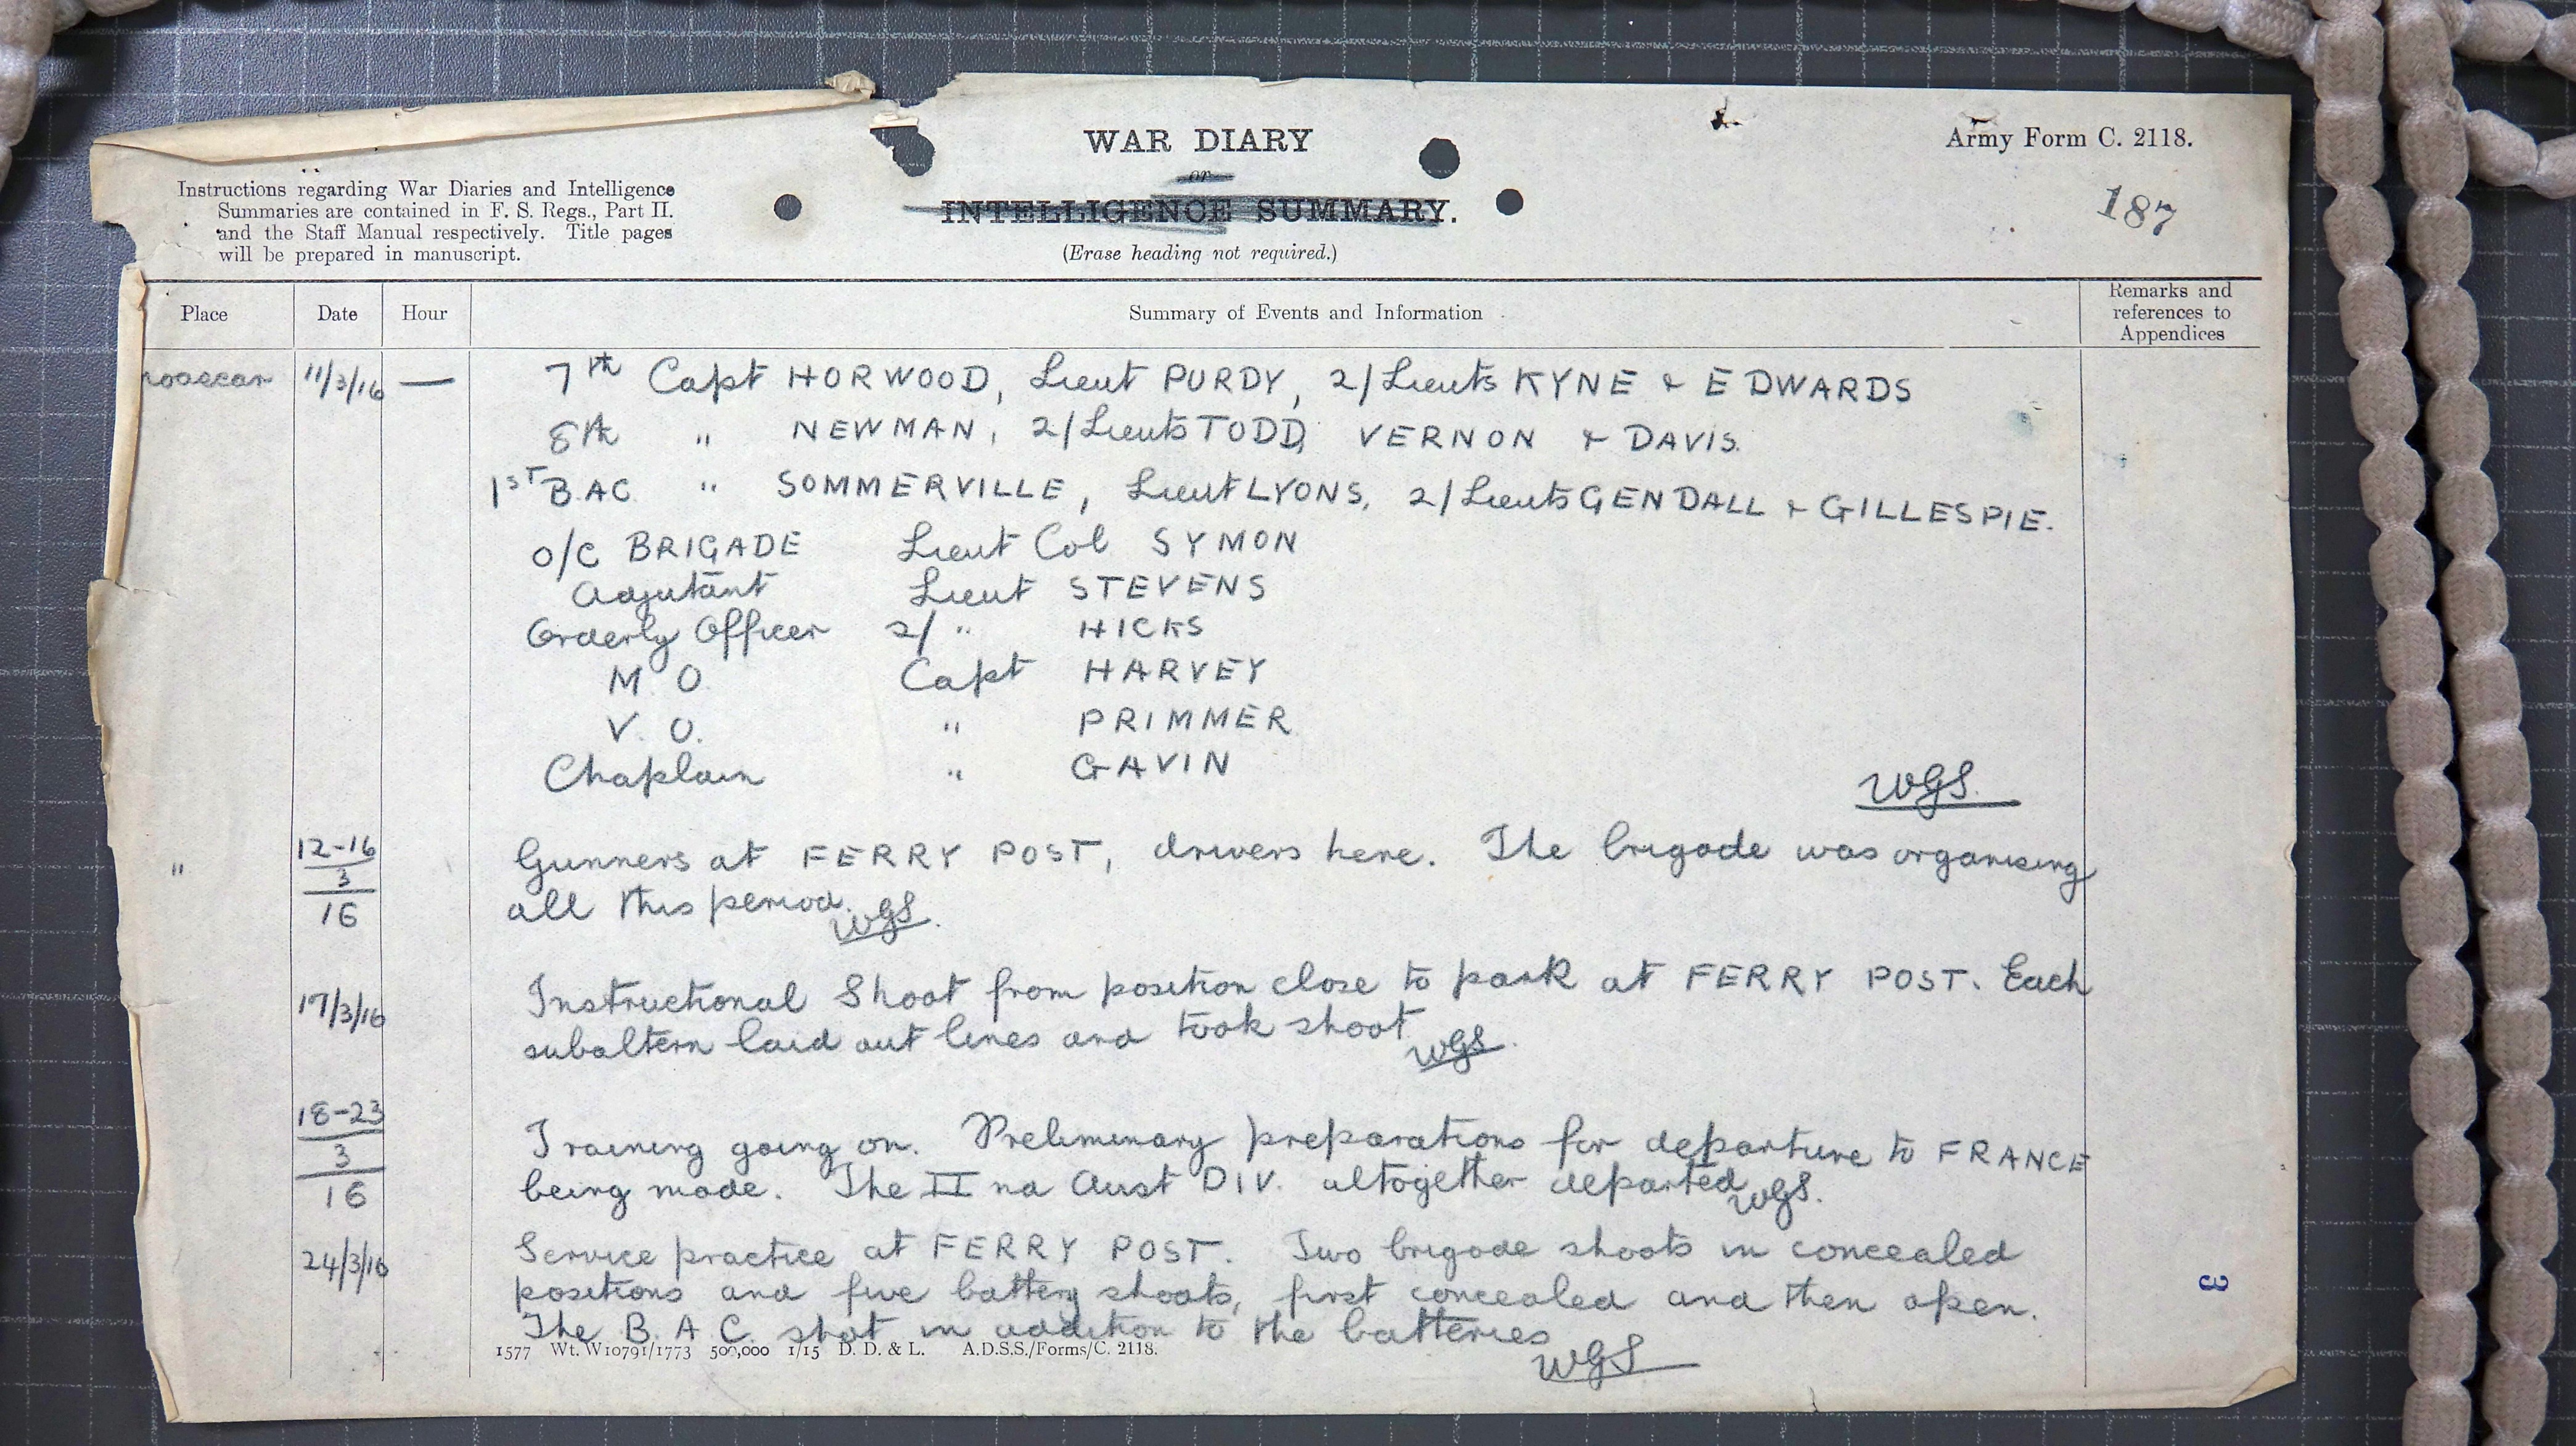 WAR DIARY
or
INTELLIGENCE SUMMARY.
(Erase heading not required.)
Army Form C. 2118.
187
Instructions regarding War Diaries and Intelligence
Summaries are contained in F. S. Regs., Part II.
and the Staff Manual respectively. Title pages
will be prepared in manuscript.
Place Date Hour Summary of Events and Information Remarks and references to Appendices
11/3/16 — 7th Capt HORWOOD, Lieut PURDY, 2/Lieuts KYNE & EDWARDS
8th " NEWMAN, 2/Lieuts TODD, VERNON & DAVIS.
1ST B.A.C. " SOMMERVILLE, Lieut LYONS, 2/Lieuts GENDALL & GILLESPIE.
O/C BRIGADE Lieut Col SYMON
Adjutant Lieut STEVENS
Orderly Officer 2/ " HICKS
M. O. Capt HARVEY
V. O. " PRIMMER
Chaplain " GAVIN
WGS.
" 12-16/3/16 Gunners at FERRY POST, drivers here. The brigade was organising
all this period. WGS.
17/3/16 Instructional Shoot from position close to park at FERRY POST. Each
subaltern laid out lines and took shoot WGS.
18-23/3/16 Training going on. Preliminary preparations for departure to FRANCE
being made. The II nd Aust DIV. altogether departed WGS.
24/3/16 Service practice at FERRY POST. Two brigade shoots in concealed
positions and five battery shoots, first concealed and then open.
The B. A. C. shot in addition to the batteries
WGS
1577 Wt. W10791/1773 500,000 1/15 D. D. & L. A.D.S.S./Forms/C. 2118.
3